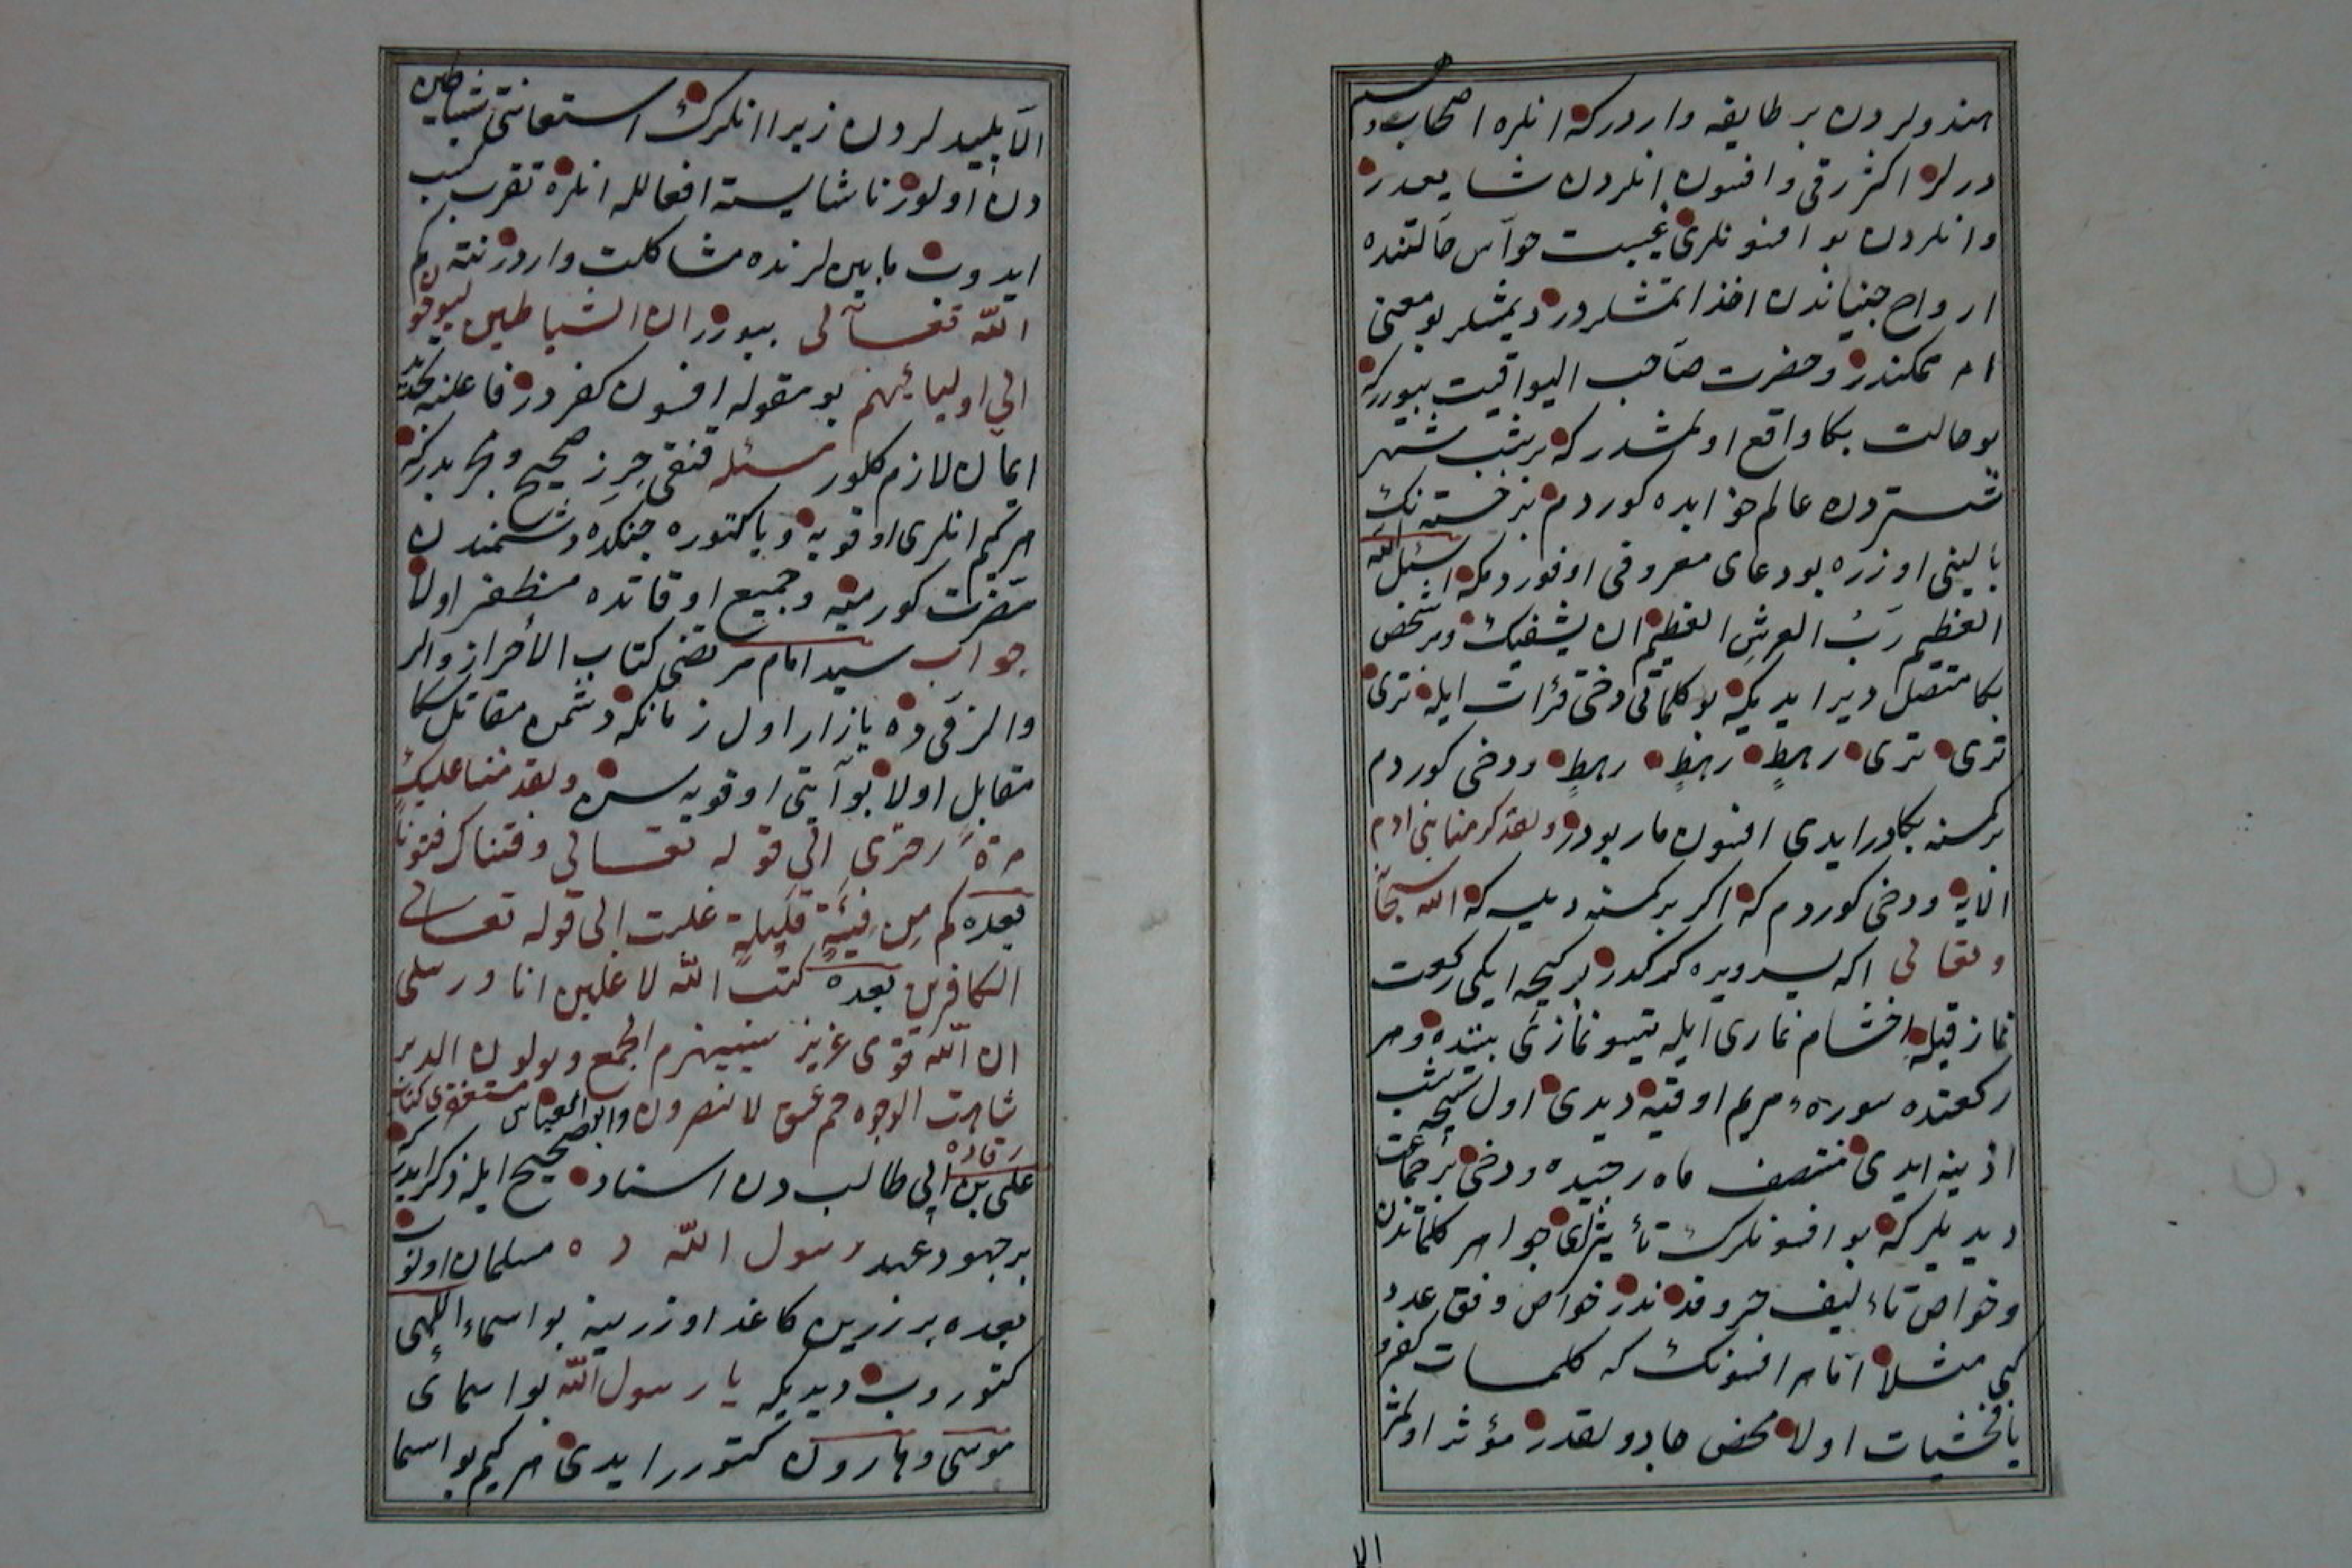 هندولردن بر طایفه واردركه انلره اصحاب وهم
درلر اکثر رقی و افسون انلردن شایعدر
وانلردن بو افسونلری غیبت حواس حالتنده
ارواح جنیاندن اخذ اتمشلردر دیمشلر بو معنی
ام ممکندر و حضرت صاحب الیواقیت بیوررکه
بو حالت بکا واقع اولمشدر که بر شب شهر
تستردن عالم خوابده کوردم بر خسته نك
بالینی اوزره بو دعای معروفی اوقوردمکه اسئل الله
العظیم رب العرش العظیم ان یشفیك وبر شخص
بکا متصل دیر ایدیکه بو کلماتی دخی قرأت ایله تری
تری تری رهط رهط رهط ودخی کوردم
برکمسنه بکا دیر ایدی افسون مار بودر ولقد کرمنا بنی ادم
الایه ودخی کوردم که اکر برکمسنه دیلسه که الله سبحانه
وتعالی اکه پسر ویره کرکدر بر کیجه ایکی رکعت
نماز قیله اخشام نمازی ایله یتسو نمازی بیننده وهر
رکعتده سوره مریم اوقیه دیدی اول کیجه شب
اذینه ایدی منتصف ماه رجبده ودخی بر جماعت
دیدیلر که بو افسونلرك تأثیرلری جواهر کلماتدن
وخواص تاءلیف حروفدندر خواص وفق عدد
کبی مثلا اتا هر افسونك که کلمات کفر و
یا فحشیات اولا محض جادولقدر مؤثر اولمز
الا
الا پلیدلردن زیرا انلرك استعانتی شیاطین
دن اولور ناشایسته افعالله انلره تقرب کسب
ایدوب مابینلرنده مشاکلت واردر نته کم
الله تعالی بیورر ان الشیاطین لیوحون
الی اولیائهم بو مقوله افسون کفردر فاعلنه تجدید
ایمان لازم کلور مسئله قنغی حرز صحیح و مجربدرکه
هرکیم انلری اوقویه ویا کتوره جنکده دشمندن
مضرت کورمیه وجمیع اوقاتده مظفر اولا
جواب سید امام مرتضی کتاب الاحراز والر
والرقی ده یازار اول زمانکه دشمن مقاتل سکا
مقابل اولا بو آیتی اوقویه سن ولقد مننا علیك
مرة اخری الی قوله تعالی وفتناك فتونا
بعده کم من فئة قلیلة غلبت الی قوله تعالی
الکافرین بعده کتب الله لاغلبن انا ورسلی
ان الله قوی عزیز سیهزم الجمع ویولون الدبر
شاهت الوجوه حم عسق لا ینصرون وابو العباس مستغفری کتاب
رقاده
علی بن ابی طالب دن اسناد صحیح ایله ذکر ایدر که
بر جهود عهد رسول الله ده مسلمان اولوب
بعده بر زرین کاغد اوزرینه بو اسماء الهی
کتوروب دیدیکه یا رسول الله بو اسمائی
موسی وهارون کتورر ایدی هرکیم بو اسما